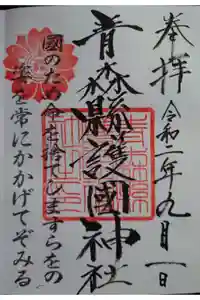 奉拝
令和二年九月一日
青森縣護國神社
國のため命を捨てしますらをの
を常にかかげてぞみる